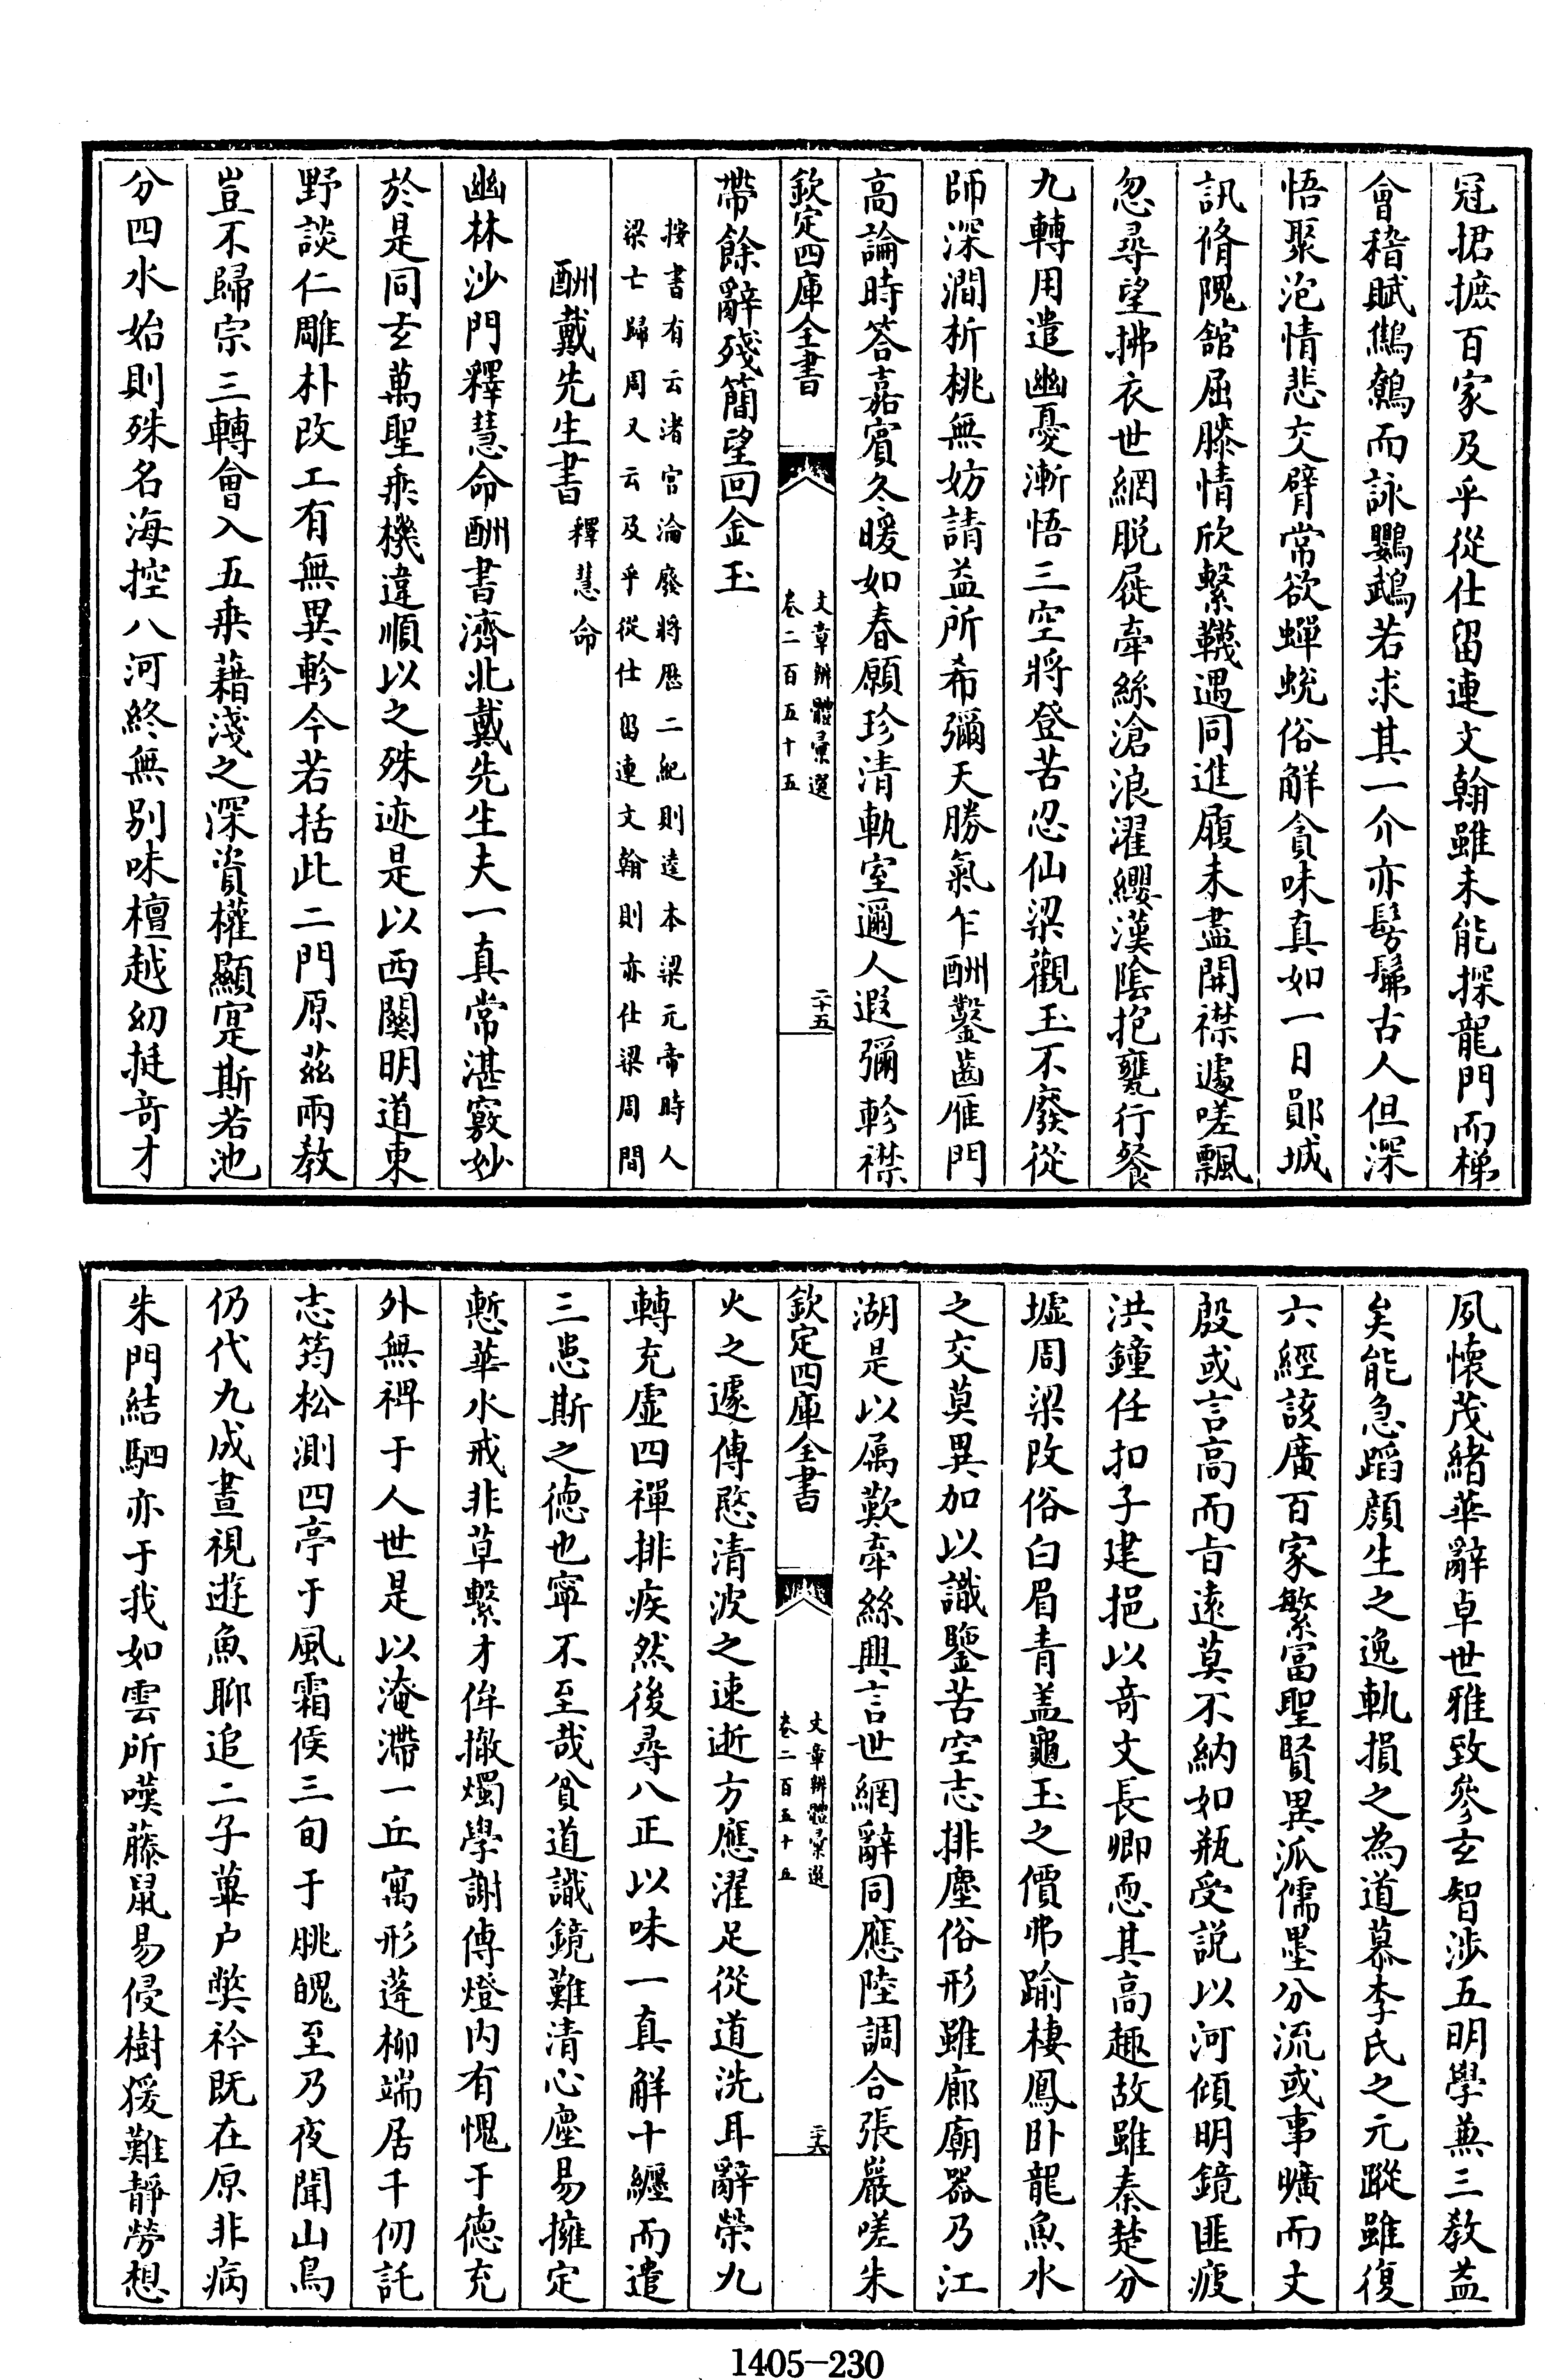 冠捃摭百家及乎從仕留連文翰雖未能探龍門而梯
會稽賦鷦鷯而詠鸚鵡若求其一介亦髣髴古人但深
悟聚泡情悲交臂常欲蟬蛻俗解貪味真如一日鄖城
訊脩隗舘屈膝情欣繫韈遇同進履未盡開襟遽嗟飄
忽尋望拂衣世網脱屣牽絲滄浪濯纓漢陰抱甕行餐
九轉用遣幽憂漸悟三空將登苦忍仙梁觀玉不廢從
師深澗析桃無妨請益所希彌天勝氣乍酬鑿齒雁門
高論時答嘉賓冬暖如春願珍清軌室邇人遐彌軫襟
欽定四庫全書
文章辨體彙選
卷二百五十五
二十五
帶餘辭殘簡望回金玉
按書有云渚宮淪廢將歴二紀則逵本梁元帝時人
梁亡歸周又云及乎從仕留連文翰則亦仕梁周間
酬戴先生書 釋慧命
幽林沙門釋慧命酬書濟北戴先生夫一真常湛竅妙
於是同玄萬聖乘機違順以之殊迹是以西關明道東
野談仁雕朴改工有無異軫今若括此二門原兹兩教
豈不歸宗三轉會入五乘藉淺之深資權顯寔斯若池
分四水始則殊名海控八河終無别味檀越幼挺竒才
夙懷茂緒華辭卓世雅致參玄智涉五明學兼三教益
矣能急蹈顔生之逸軌損之為道慕李氏之元蹤雖復
六經該廣百家繁富聖賢異派儒墨分流或事曠而文
殷或言高而旨遠莫不納如瓶受説以河傾明鏡匪疲
洪鐘任扣子建挹以竒文長卿恧其高趣故雖秦楚分
墟周梁改俗白眉青盖龜玉之價弗踰棲鳳卧龍魚水
之交莫異加以識鑒苦空志排塵俗形雖廊廟器乃江
湖是以属歎牽絲興言世網辭同應陸調合張嚴嗟朱
欽定四庫全書
文章辨體彙選
卷二百五十五
二十六
火之遽傳愍清波之速逝方應濯足從道洗耳辭榮九
轉充虛四禪排疾然後尋八正以味一真解十纏而遣
三患斯之德也寧不至哉貧道識鏡難清心塵易擁定
慙華水戒非草繫才侔撤燭學謝傳燈内有愧于德充
外無禆于人世是以淹滯一丘寓形蓬柳端居千仞託
志筠松測四序于風霜候三旬于朓魄至乃夜聞山鳥
仍代九成晝視遊魚聊追二子蓽户弊衿既在原非病
朱門結駟亦于我如雲所嘆藤鼠易侵樹猨難静勞想
1405-230